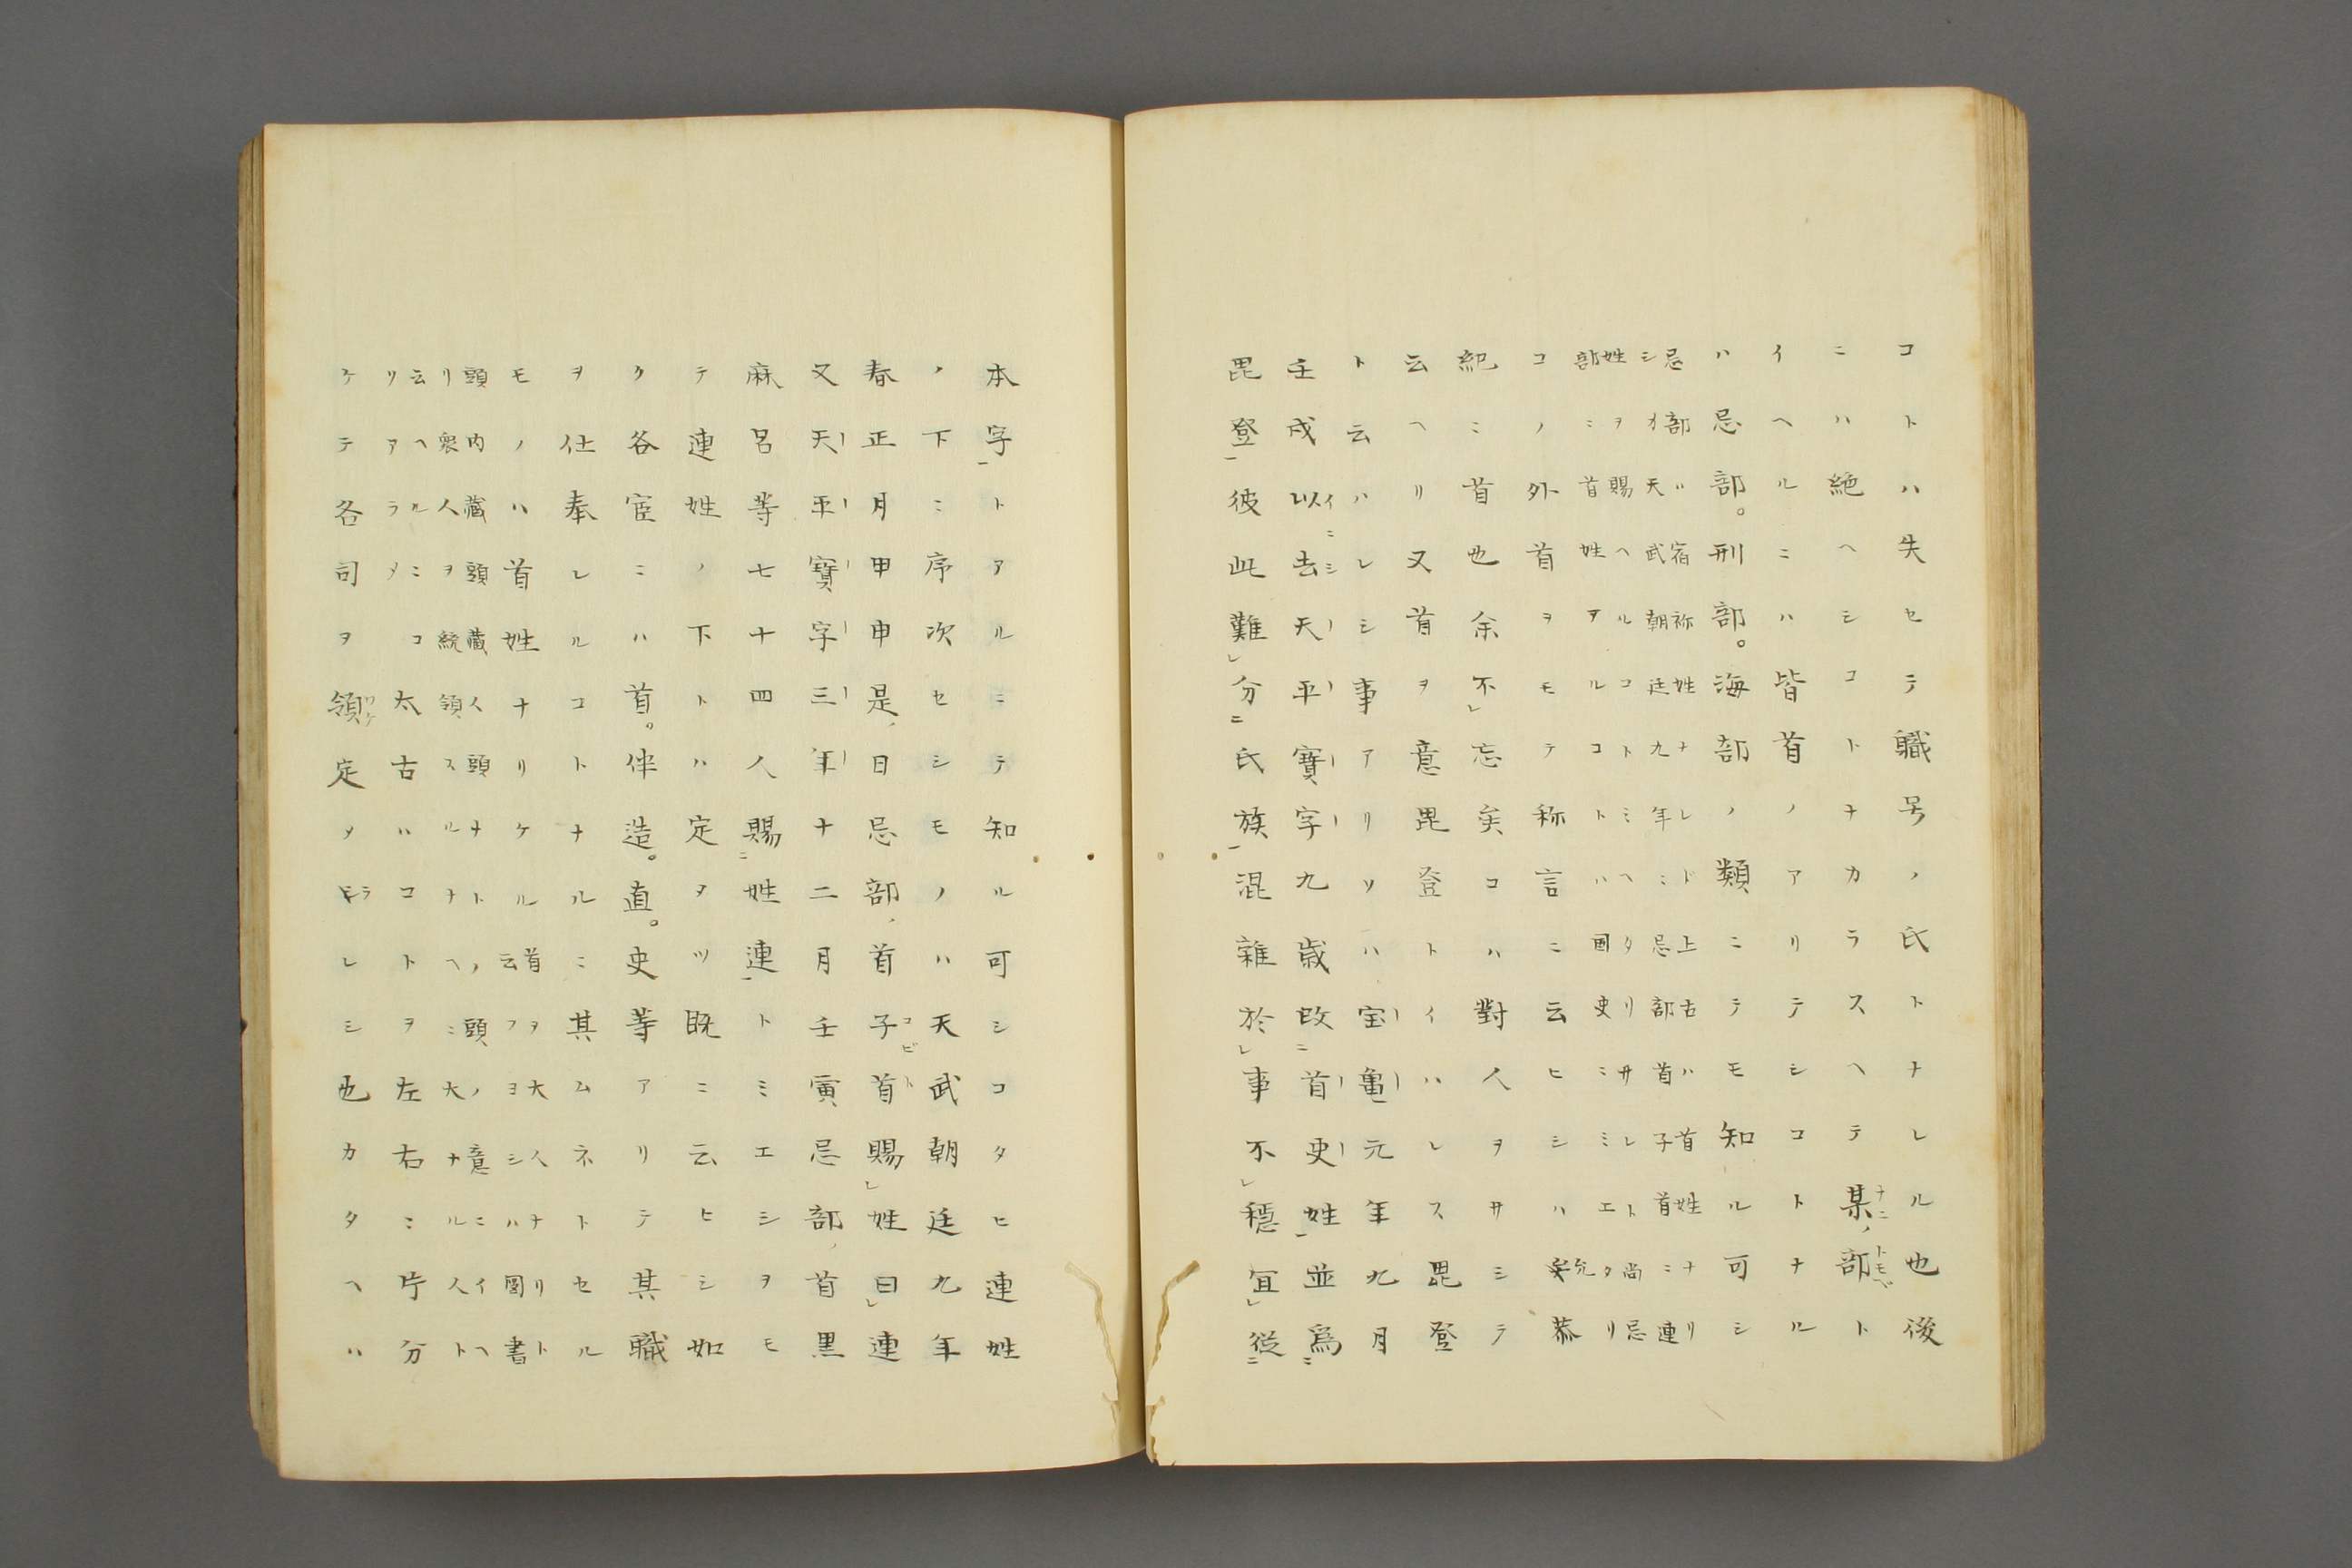 コトハ失セテ職号ノ氏トナレル也後
ニハ絶ヘシコトナカラスヘテ某ノ部ト
イヘルニハ皆首ノアリテシコトナル
ハ忌部。刑部。海部ノ類ニテモ知ル可シ
忌部ハ宿祢姓ナレド上古ハ首姓ナリ
シカ天武朝廷九年ニ忌部首子首ニ連
姓ヲ賜ヘルコトミヘタリサレト尚忌
部ニ首姓アルコトハ国史ニミエタリ
コノ外首ヲモテ称言ニ云ヒシハ允恭
紀ニ首也余不忘矣コハ對人ヲサシテ
云ヘリ又首ヲ意毘登トイハレス毘登
ト云ハレシ事アリソハ宝亀元年九月
壬戌以去天平寶字九歳改首史姓並爲
毘登彼此難分氏族混雜於事不穏宜從
本字トアルニテ知ル可シコタヒ連姓
ノ下ニ序次セシモノハ天武朝廷九年
春正月甲申是ノ日忌部ノ首子首賜姓曰連
又天平寶字三年十二月壬寅忌部ノ首黒
麻呂等七十四人賜姓連トミエシヲモ
テ連姓ノ下トハ定ヲツ既ニ云ヒシ如
ク各宦ニハ首。伴造。直。史等アリテ其職
ヲ仕奉レルコトナルニ其ムネトセル
モノハ首姓ナリケル
首ヲ大人ナリト
云フヲシハ圖書
頭内蔵頭蔵人頭ナトノ頭ノ意ニイヘ
リ衆人ヲ統領スルナヘニ大ナル人ト
云ヘルニコ
リアラメ
太古ハコトヲ左右ミ片分
ケテ各司ヲ領定メラレシ也カタヘハ